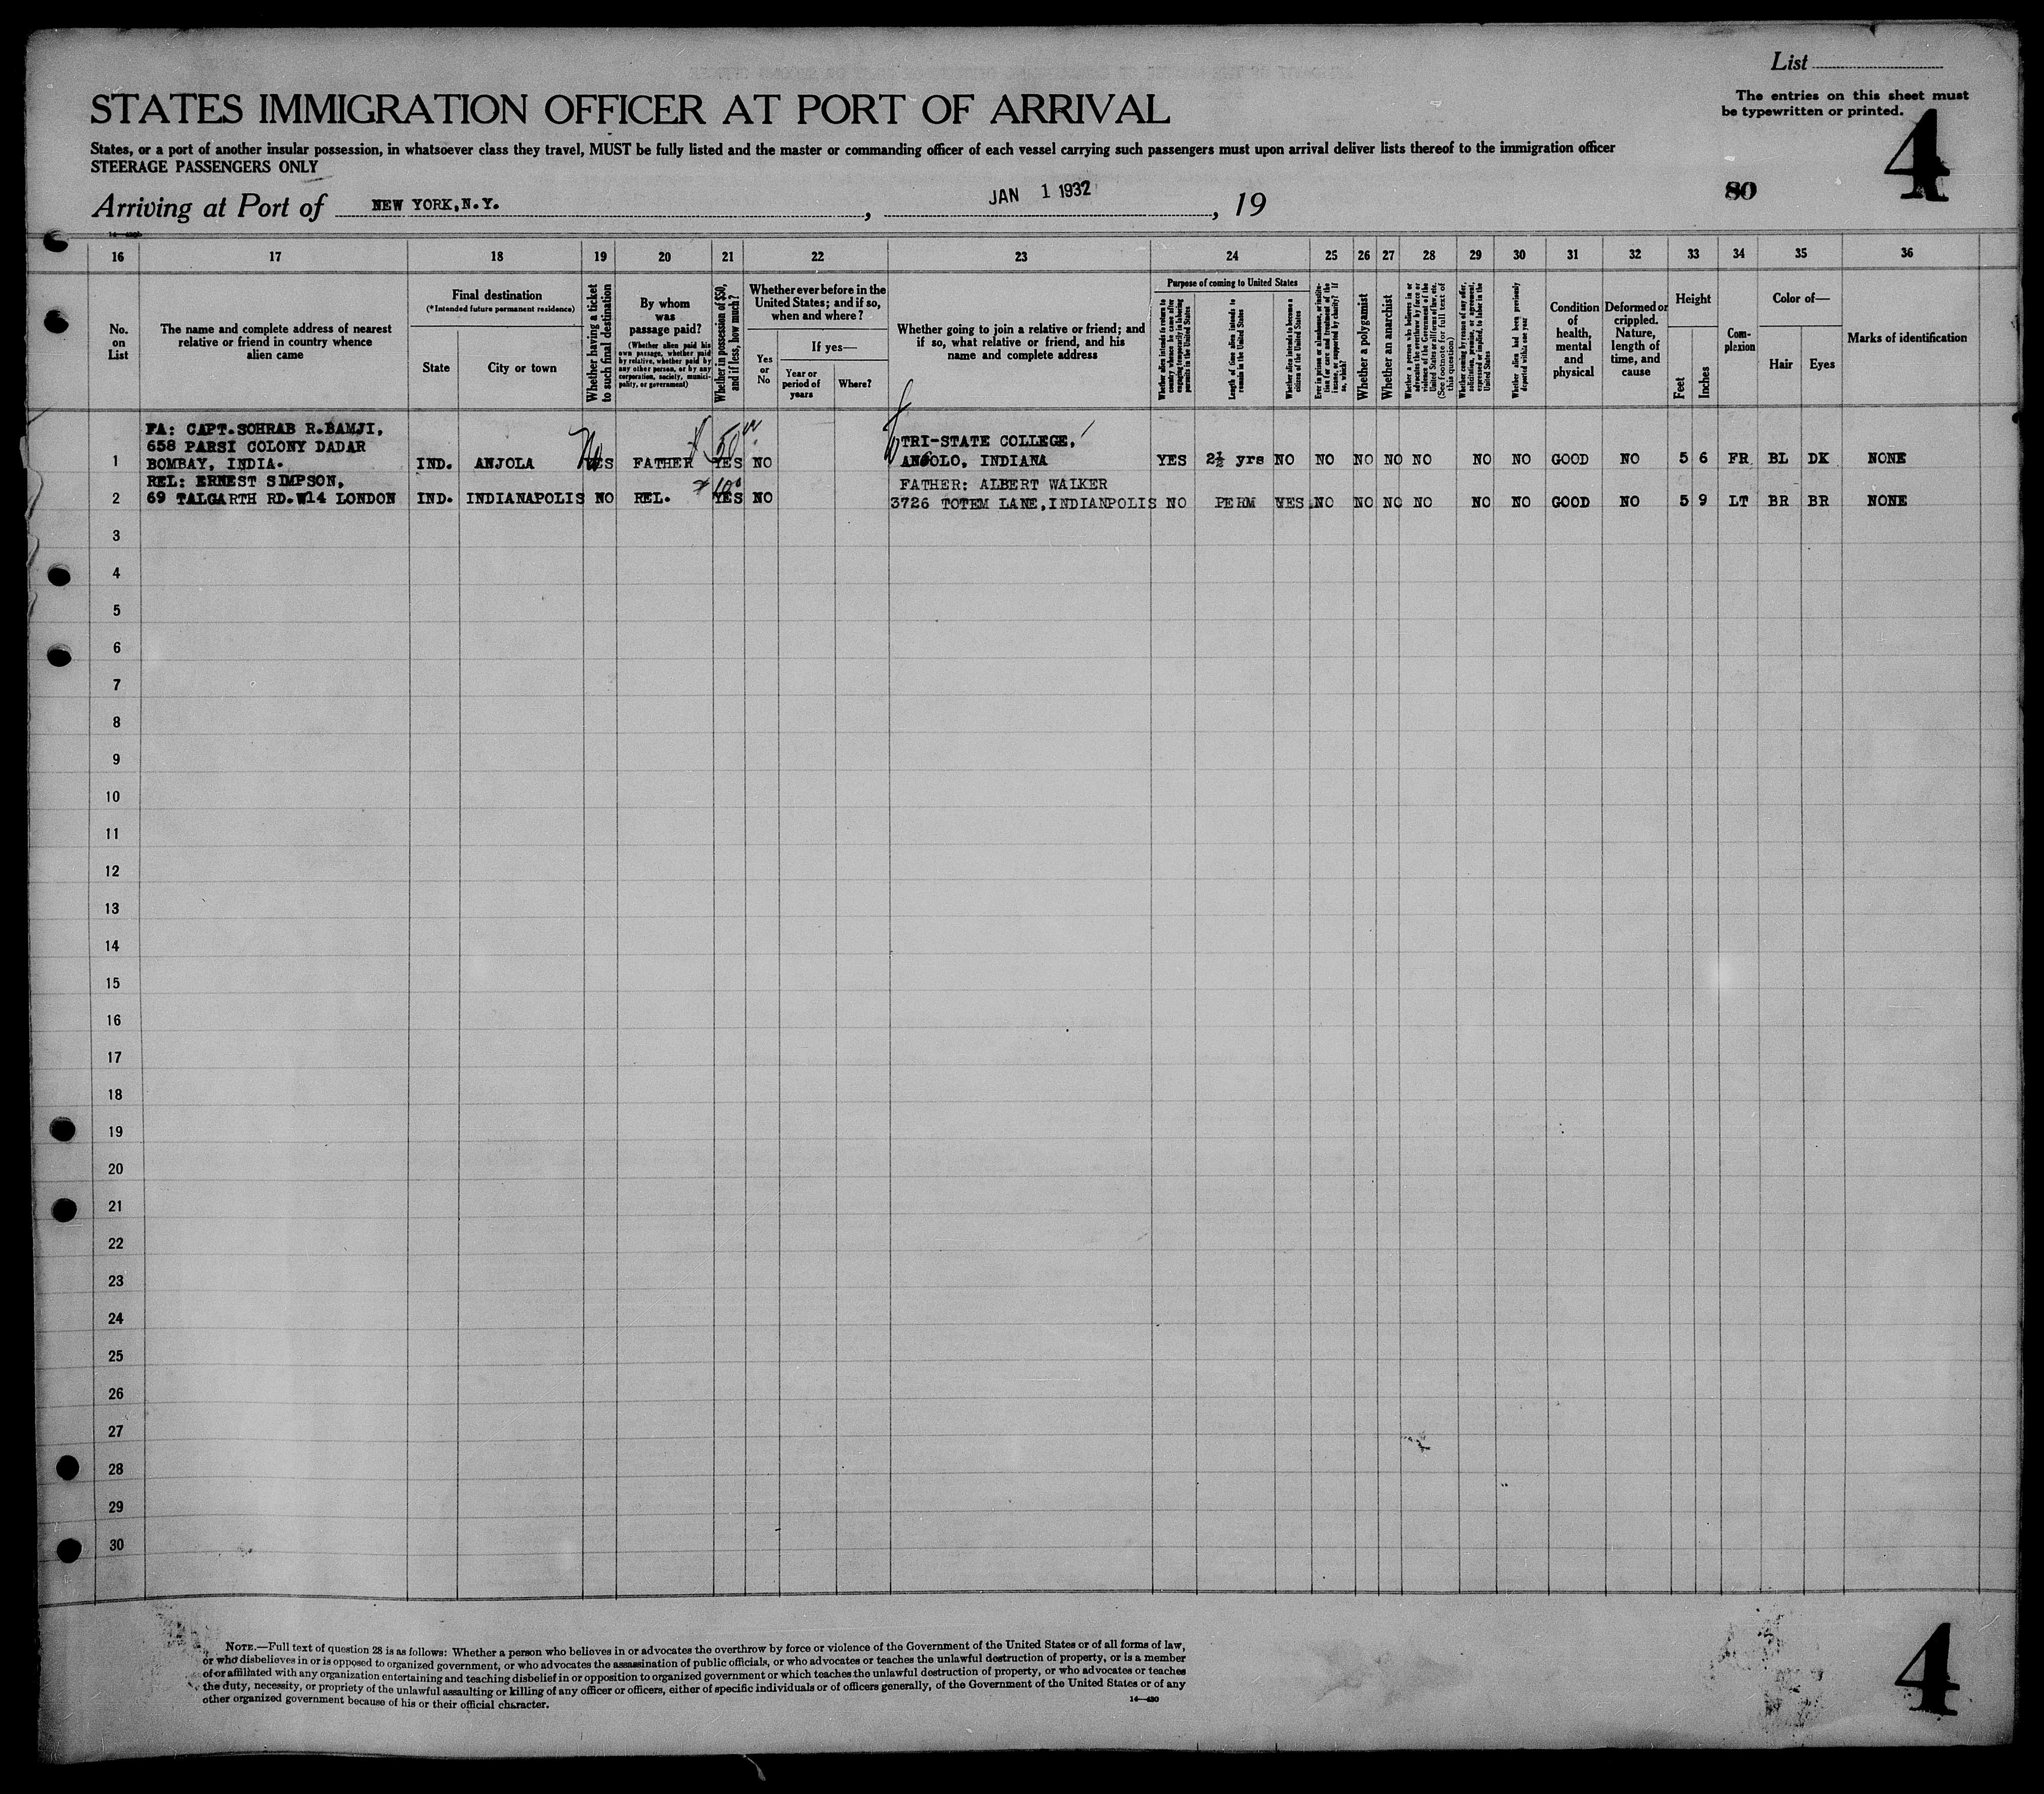 List
The entries on this sheet must
be typewritten or printed.
4
STATES IMMIGRATION OFFICER AT PORT OF ARRIVAL
States, or a port of another insular possession, in whatsoever class they travel, MUST be fully listed and the master or commanding officer of each vessel carrying such passengers must upon arrival deliver lists thereof to the immigration officer
STEERAGE PASSENGERS ONLY
80
Arriving at Port of NEW YORK, N.Y. , JAN 1 1932 , 19
16 17 18 19 20 21 22 23 24 25 26 27 28 29 30 31 32 33 34 35 36
No.
on
List
The name and complete address of nearest
relative or friend in country whence
alien came
Final destination
(*Intended future permanent residence)
State
City or town
Whether having a ticket
to such final destination
By whom
was
passage paid?
(Whether alien paid his
own passage, whether paid
by relative, whether paid by
any other person, or by any
corporation, society, munici-
pality, or government)
Whether in possession of $50,
and if less, how much?
Whether ever before in the
United States; and if so,
when and where?
Yes
or
No
If yes—
Year or
period of
years
Where?
Whether going to join a relative or friend; and
if so, what relative or friend, and his
name and complete address
Purpose of coming to United States
Whether alien intends to return to
country whence he came after
engaging temporarily in laboring
pursuits in the United States
Length of time alien intends to
remain in the United States
Whether alien intends to become a
citizen of the United States
Ever in prison or almshouse, or institu-
tion for care and treatment of the
insane, or supported by charity? If
so, which?
Whether a polygamist
Whether an anarchist
Whether a person who believes in or
advocates the overthrow by force or
violence of the Government of the
United States or all forms of law, etc.
(See footnote for full text of
this question)
Whether coming by reason of any offer,
solicitation, promise, or agreement,
expressed or implied, to labor in the
United States
Whether alien had been previously
deported within one year
Condition
of
health,
mental
and
physical
Deformed or
crippled.
Nature,
length of
time, and
cause
Height
Feet
Inches
Com-
plexion
Color of—
Hair
Eyes
Marks of identification
FA: CAPT. SOHRAB R. BAMJI,
658 PARSI COLONY DADAR
TRI-STATE COLLEGE,
1 BOMBAY, INDIA. IND. ANJOLA No YES FATHER 50 YES NO ANGOLO, INDIANA YES 2½ yrs NO NO NO NO NO NO NO GOOD NO 5 6 FR. BL DK NONE
REL: ERNEST SIMPSON,
FATHER: ALBERT WALKER
2 69 TALGARTH RD. W14 LONDON IND. INDIANAPOLIS NO REL. 100 YES NO 3726 TOTEM LANE, INDIANPOLIS NO PERM YES. NO NO NO NO NO NO GOOD NO 5 9 LT BR BR NONE
3
4
5
6
7
8
9
10
11
12
13
14
15
16
17
18
19
20
21
22
23
24
25
26
27
28
29
30
NOTE.—Full text of question 28 is as follows: Whether a person who believes in or advocates the overthrow by force or violence of the Government of the United States or of all forms of law,
or who disbelieves in or is opposed to organized government, or who advocates the assassination of public officials, or who advocates or teaches the unlawful destruction of property, or is a member
of or affiliated with any organization entertaining and teaching disbelief in or opposition to organized government or which teaches the unlawful destruction of property, or who advocates or teaches
the duty, necessity, or propriety of the unlawful assaulting or killing of any officer or officers, either of specific individuals or of officers generally, of the Government of the United States or of any
other organized government because of his or their official character.
14—430
4